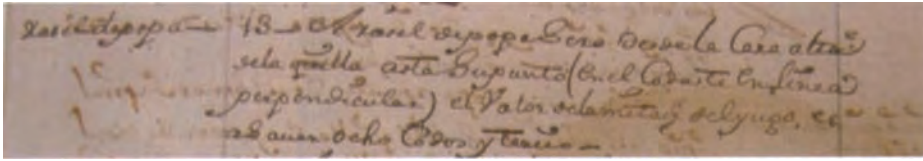 Rasel de popa 13 - El rasel de popa Sera desde la Cara alta
de la quilla asta Su punto (en el Codaste en linea
perpendicular) el Valor de la mitad del yugo, es
a saver ocho Codos y tercio